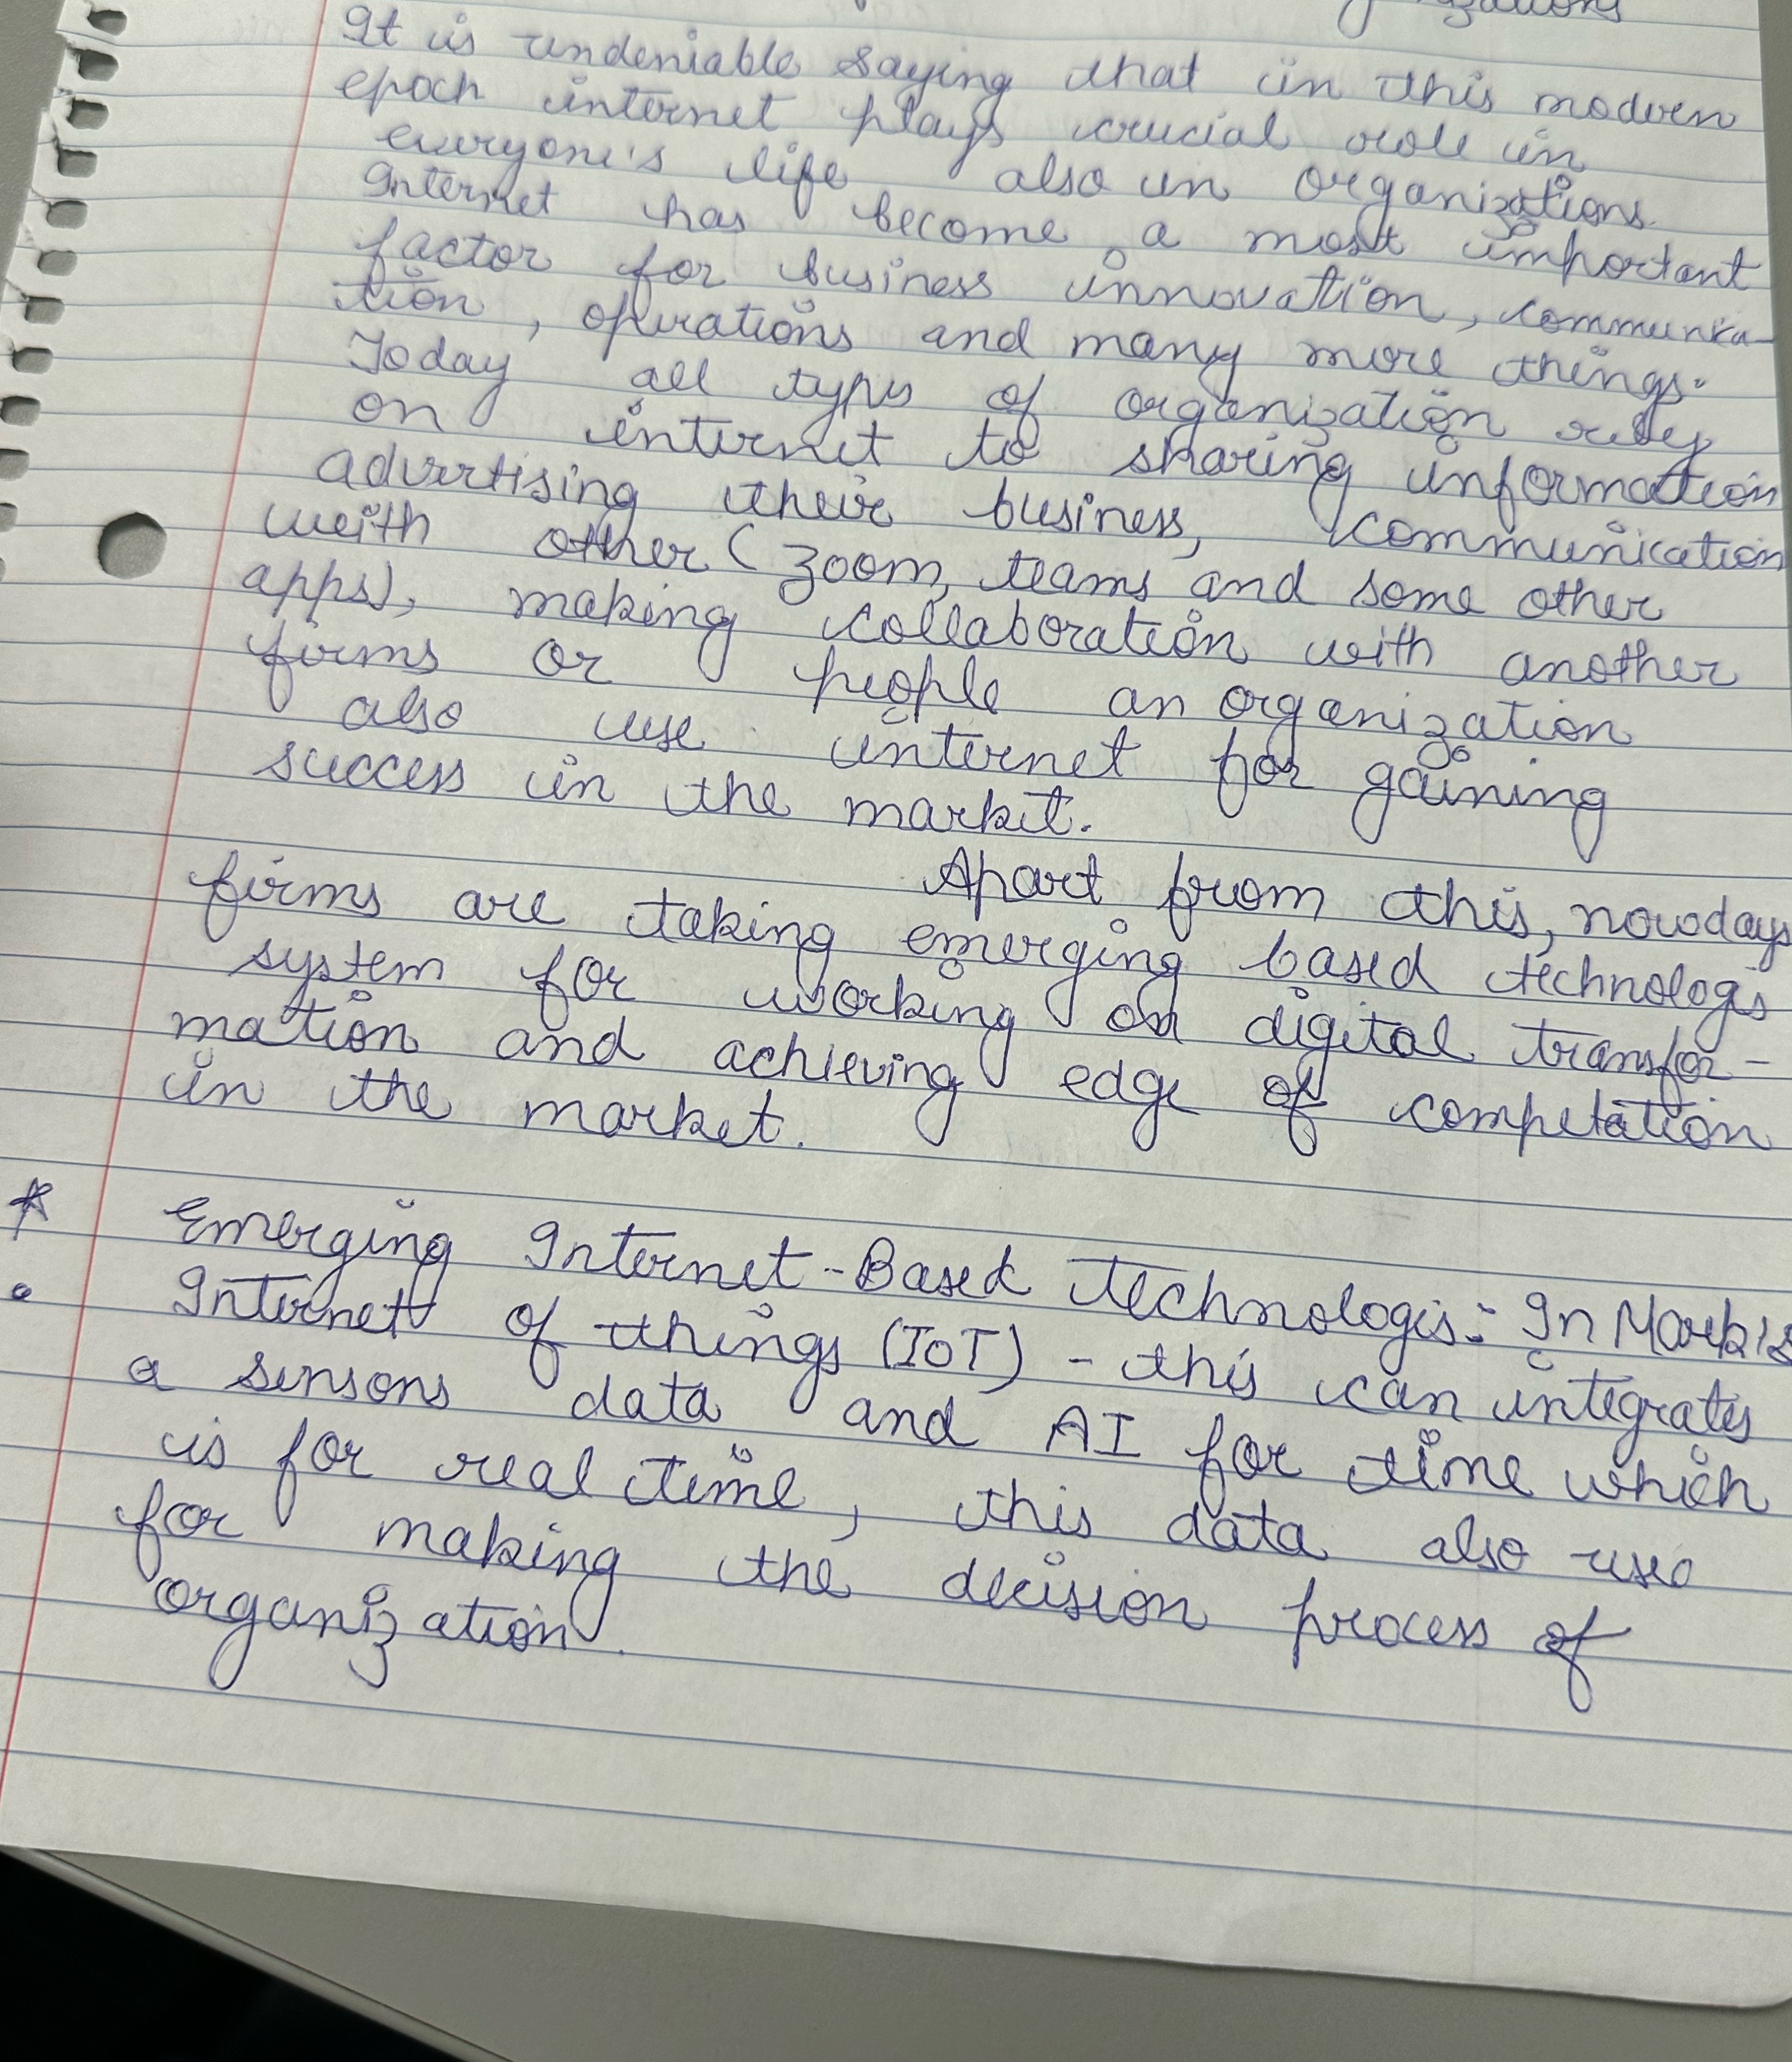 It is undeniable saying that in this modern
epoch internet plays crucial role in
everyone's life also in organizations.
Internet has become a most important
factor for business innovation, communica-
tion, operations and many more things.
Today all types of organization rely
on internet to sharing information
advertising their business, communication
with other (zoom, teams and some other
apps), making collaboration with another
firms or people an organization
also use internet for gaining
success in the market.
Apart from this, nowdays
firms are taking emerging based technologis
system for working on digital transfor-
mation and achieving edge of competation
in the market.
* Emerging Internet-Based Technologis:- In
• Internet of things (IoT) - this can integrates
a sensons data and AI for time which
is for real time, this data also use
for making the decision process of
organization.